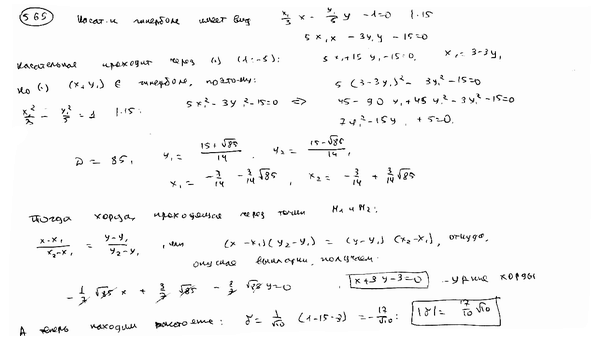 565 Касат. к гиперболе имеет вид x₁/3 x - y₁/5 y - 1=0 |·15
5x₁x - 3y₁y - 15=0
касательная проходит через (·) (1;-5): 5x₁+15y₁-15=0, x₁=3-3y₁
Но (·) (x₁y₁) ∈ гиперболе, поэтому: 5(3-3y₁)² - 3y₁²-15=0
x₁²/3 - y₁²/5 = 1 |·15 5x₁²-3y₁²-15=0 => 45-90y₁+45y₁²-3y₁²-15=0
y₁²-15y₁+5=0.
D = 85, y₁ = (15+√85)/14, y₂ = (15-√85)/14,
x₁ = -3/14 - 3/14 √85, x₂ = -3/14 + 3/14 √85
Тогда хорда, проходящая через точки M₁ и M₂:
(x-x₁)/(x₂-x₁) = (y-y₁)/(y₂-y₁), или (x-x₁)(y₂-y₁) = (y-y₁)(x₂-x₁), откуда,
опуская выкладки, получаем:
x+3y-3=0 - ур-ние хорды
А теперь находим расстояние: δ = 1/√10 (1-15-3) = -17/√10; |δ| = 17/10 √10